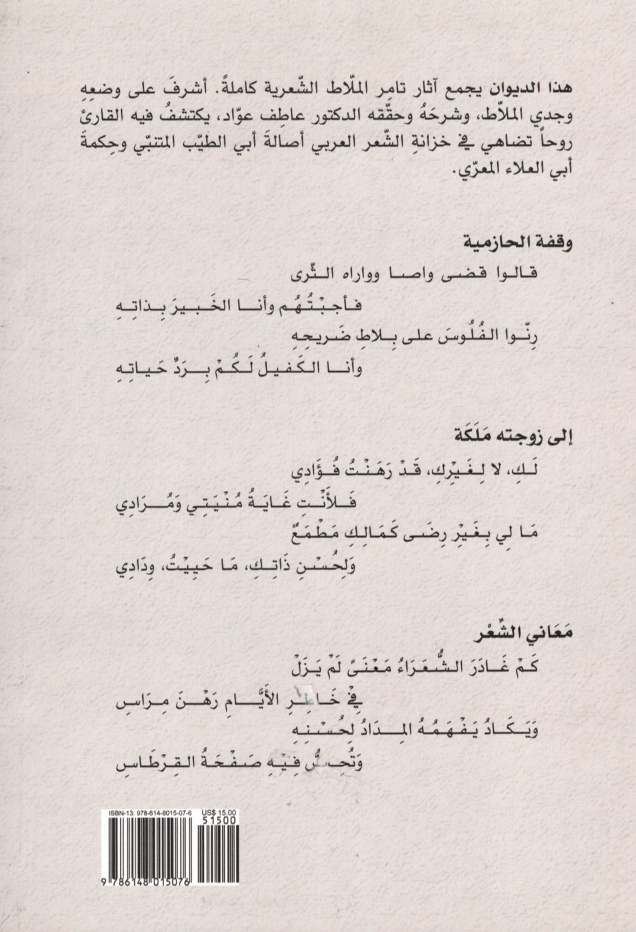 هذا الديوان يجمع آثار تامر الملّاط الشّعرية كاملةً. أشرفَ على وضعِهِ
وجدي الملّاط، وشرحَهُ وحقَّقه الدكتور عاطِف عوّاد، يكتشفُ فيه القارئ
روحاً تضاهي في خزانةِ الشّعر العربي أصالةَ أبي الطيّب المتنبّي وحِكمةَ
أبي العلاء المعرّي.
وقفة الحازمية
قالوا قضى واصا وواراه الثّرى
فأجبْتُهُم وأنا الخَبيرَ بِذاتِهِ
رِنّوا الفُلُوسَ على بِلاطِ ضَريحِهِ
وأنا الكَفيلُ لَكُمْ بِرَدِّ حَياتِهِ
إلى زوجته مَلَكَة
لَكِ، لا لِغَيْرِكِ، قَدْ رَهَنْتُ فُؤَادِي
فَلأَنْتِ غَايَةُ مُنْيَتِي وَمُرَادِي
مَا لي بِغَيْرِ رِضَى كَمَالِكِ مَطْمَعٌ
وَلِحُسْنِ ذَاتِكِ، مَا حَيِيْتُ، وِدَادِي
مَعَاني الشِّعْر
كَمْ غَادَرَ الشُّعَرَاءُ مَعْنَىً لَمْ يَزَلْ
فِي خَاطِرِ الأَيَّامِ رَهْنَ مِرَاسِ
وَيَكَادُ يَفْهَمُهُ المِدَادُ لِحُسْنِهِ
وَتُحِسُّ فِيْهِ صَفْحَةُ القِرْطَاسِ
ISBN-13: 978-614-8015-07-6 US$ 15.00
51500
9 786148 015076